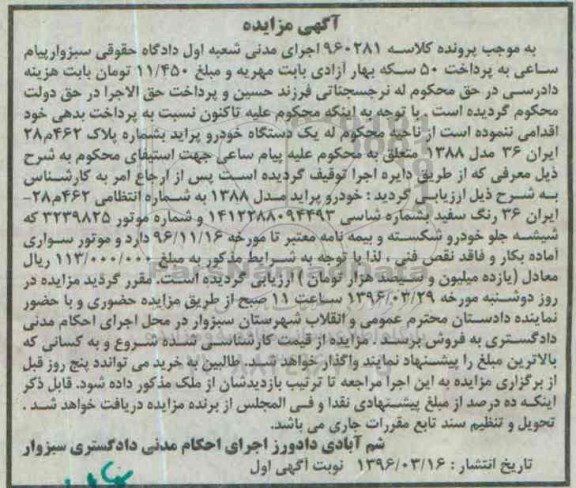 آگهی مزایده
به موجب پرونده کلاسه ۹۶۰۲۸۱ اجرای مدنی شعبه اول دادگاه حقوقی سبزوارپیام
ساعی به پرداخت ۵۰ سکه بهار آزادی بابت مهریه و مبلغ ۱۱/۴۵۰ تومان بابت هزینه
دادرسی در حق محکوم له نرجسجناتی فرزند حسین و پرداخت حق الاجرا در حق دولت
محکوم گردیده است . با توجه به اینکه محکوم علیه تاکنون نسبت به پرداخت بدهی خود
اقدامی ننموده است از ناحیه محکوم له یک دستگاه خودرو پراید بشماره پلاک ۴۶۲م۲۸
ایران ۳۶ مدل ۱۳۸۸ متعلق به محکوم علیه پیام ساعی جهت استیفای محکوم به شرح
ذیل معرفی که از طریق دایره اجرا توقیف گردیده است پس از ارجاع امر به کارشناس
به شرح ذیل ارزیابی گردید : خودرو پراید مدل ۱۳۸۸ به شماره انتظامی ۴۶۲م۲۸-
ایران ۳۶ رنگ سفید بشماره شاسی ۱۴۱۲۲۸۸۰۹۴۴۹۳ و شماره موتور ۳۲۳۹۸۲۵ که
شیشه جلو خودرو شکسته و بیمه نامه معتبر تا مورخه ۹۶/۱۱/۱۶ دارد و موتور سواری
آماده بکار و فاقد نقص فنی ، لذا با توجه به شرایط مذکور به مبلغ ۱۱۳/۰۰۰/۰۰۰ ریال
معادل (یازده میلیون و سیصد هزار تومان ) ارزیابی گردیده است. مقرر گردید مزایده در
روز دوشنبه مورخه ۱۳۹۶/۰۳/۲۹ ساعت ۱۱ صبح از طریق مزایده حضوری و با حضور
نماینده دادستان محترم عمومی و انقلاب شهرستان سبزوار در محل اجرای احکام مدنی
دادگستری به فروش برسد . مزایده از قیمت کارشناسی شده شروع و به کسانی که
بالاترین مبلغ را پیشنهاد نمایند واگذار خواهد شد . طالبین به خرید می توانند پنج روز قبل
از برگزاری مزایده به این اجرا مراجعه تا ترتیب بازدیدشان از ملک مذکور داده شود. قابل ذکر
اینکه ده درصد از مبلغ پیشنهادی نقدا و فی المجلس از برنده مزایده دریافت خواهد شد .
تحویل و تنظیم سند تابع مقررات جاری می باشد.
شم آبادی دادورز اجرای احکام مدنی دادگستری سبزوار
تاریخ انتشار : ۱۳۹۶/۰۳/۱۶ نوبت آگهی اول